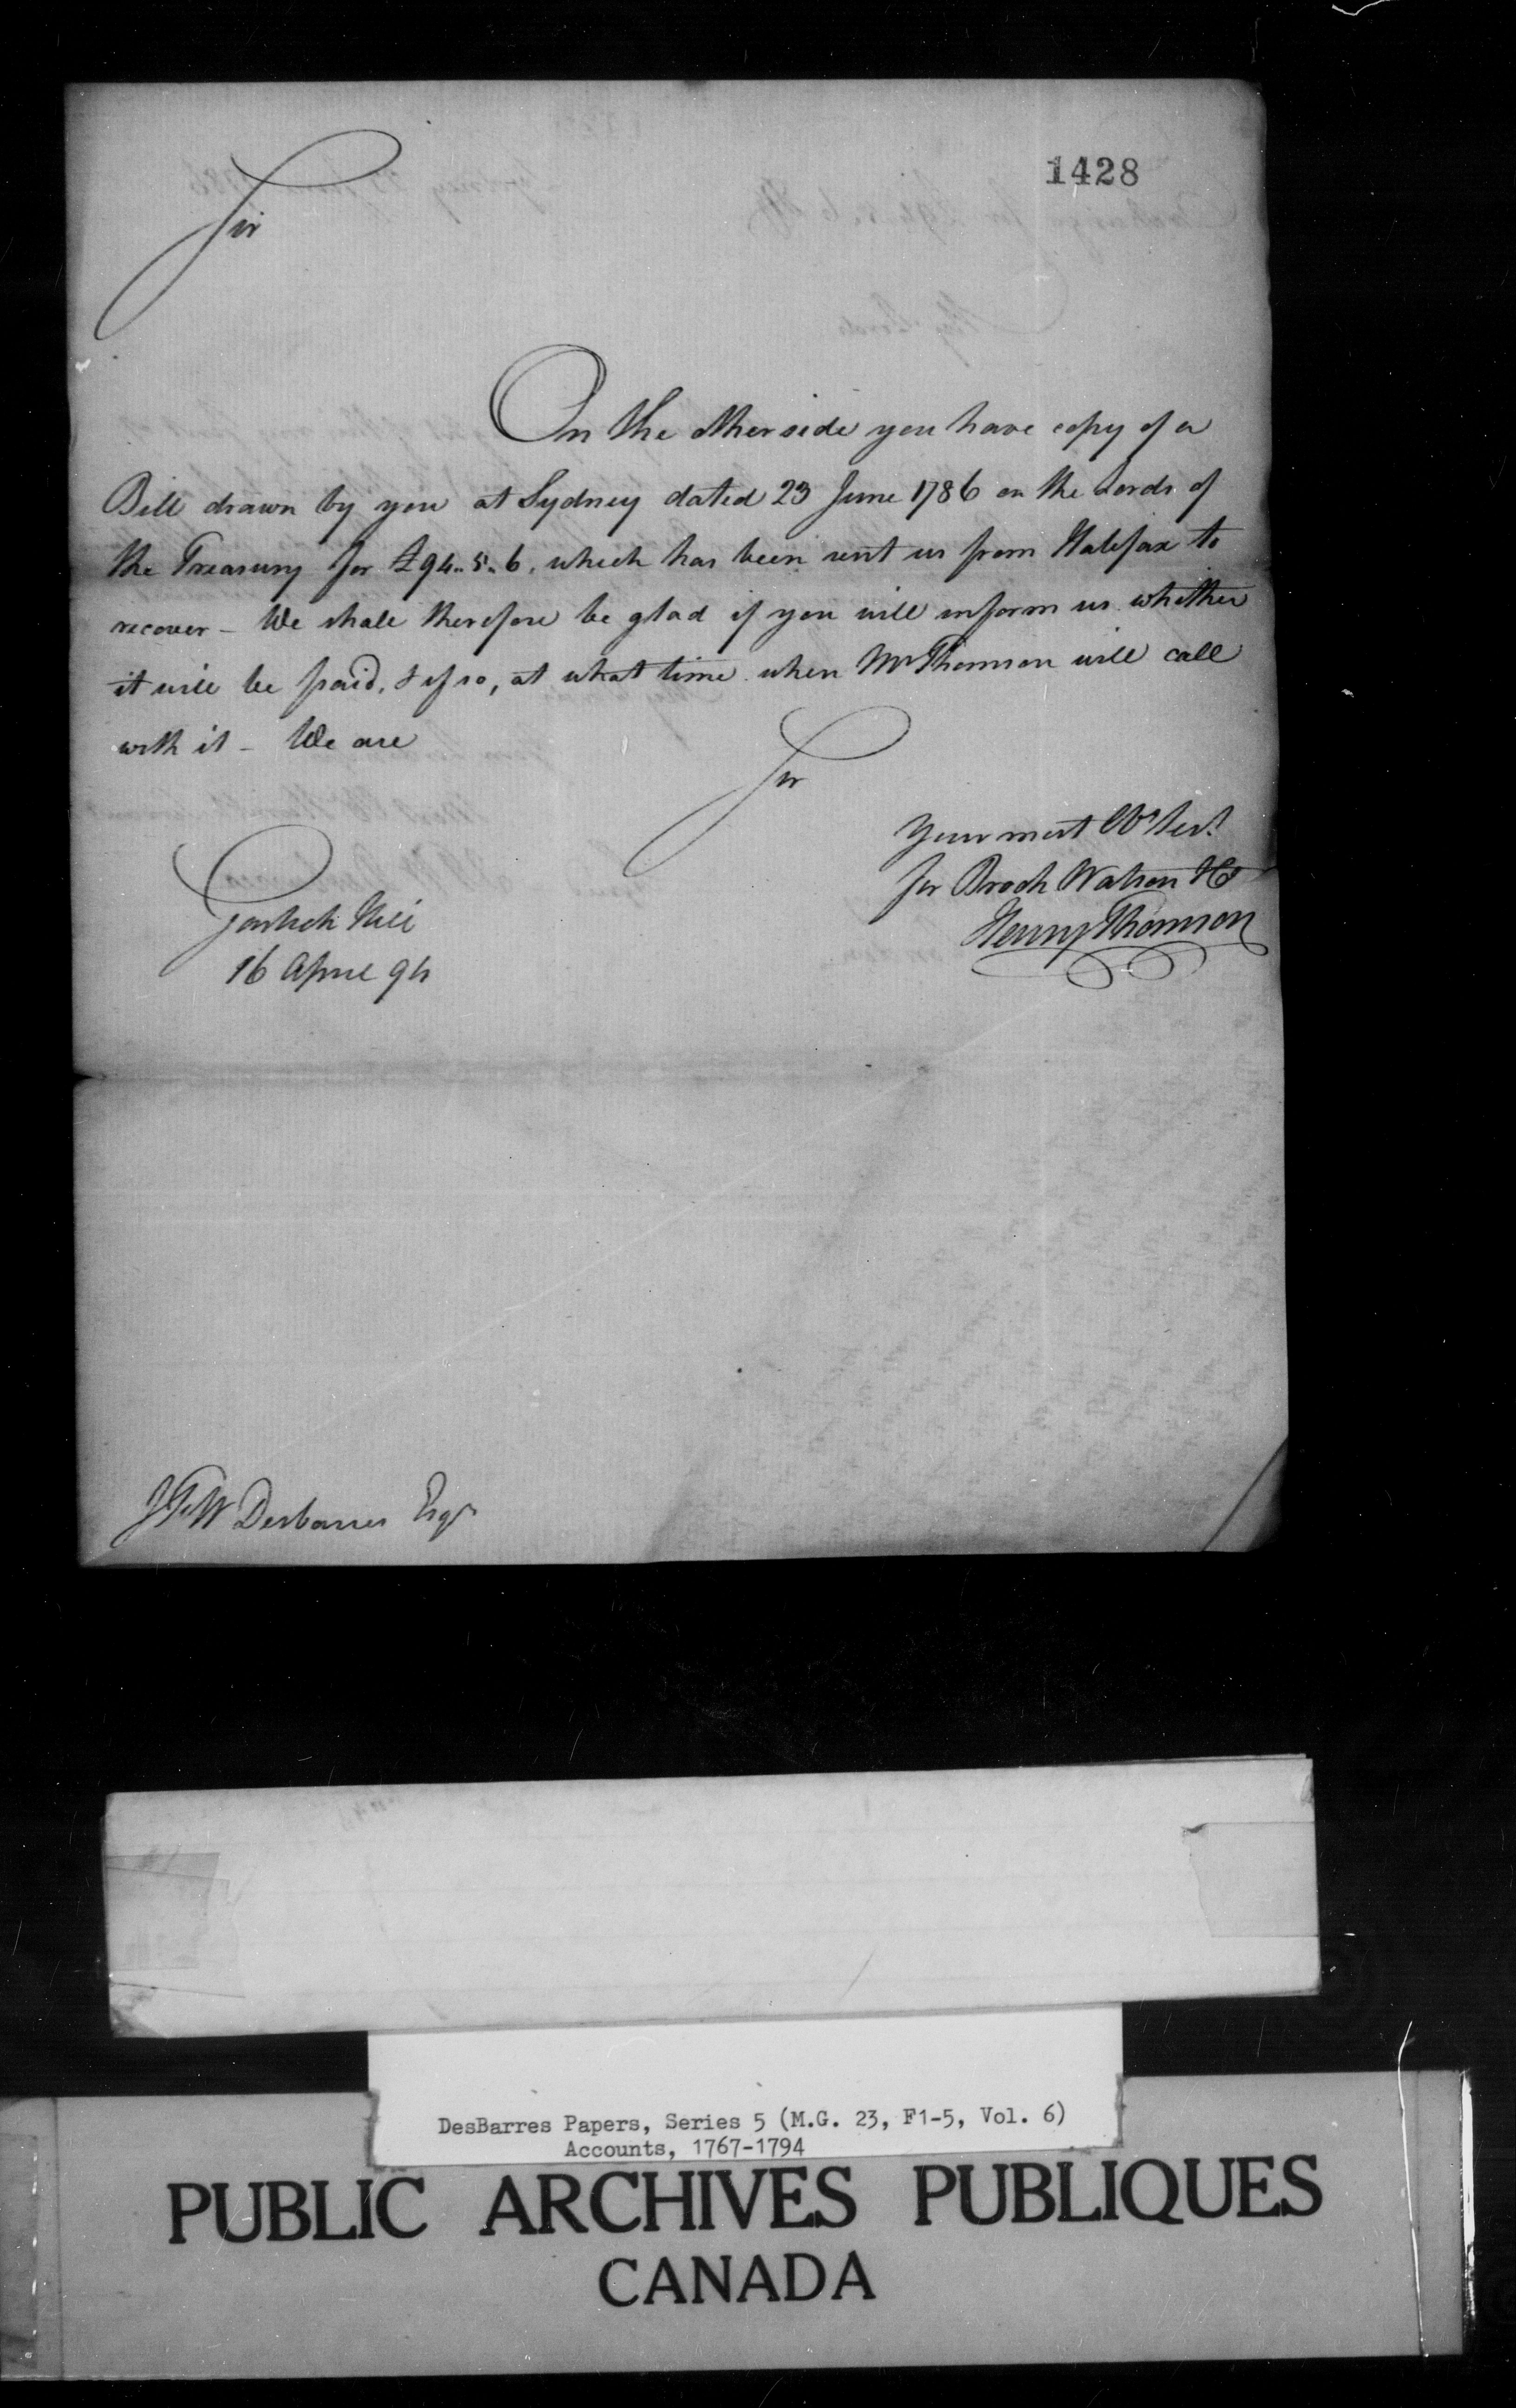 1428
Sir
On the other side you have copy of a
Bill drawn by you at Sydney dated 23 June 1786 on the Lords of
the Treasury for £94..5..6, which has been sent us from Halifax to
recover - We shall therefore be glad if you will inform us whether
it will be paid, & if so, at what time when Mr Thomson will call
with it - We are
Sir
Your most Ob. Serv.t
for Brook Watson & Co
Henry Thomson
Garlick Hill
16 April 94
J F W Desbarres Esqr
DesBarres Papers, Series 5 (M.G. 23, F1-5, Vol. 6)
Accounts, 1767-1794
PUBLIC ARCHIVES PUBLIQUES
CANADA